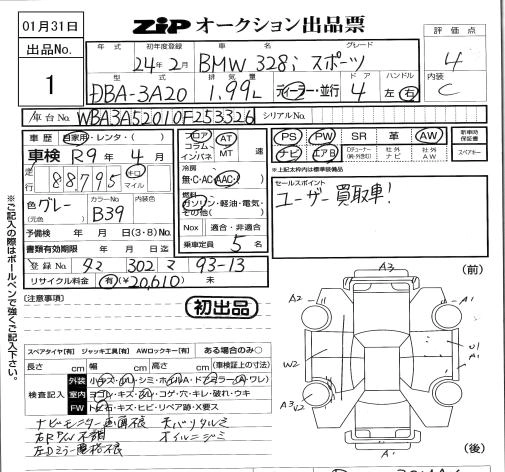 01月31日
ZIP オークション出品票
出品No.
1
年式 初年度登録 車名 グレード
24年2月 BMW 328i スポーツ
型式 排気量 ドア ハンドル
DBA-3A20 1.99L ディーラー・並行 4 左 右
評価点
4
内装
C
車台No. WBA3A52010F253326 シリアルNo.
車歴 自家用・レンタ・( )
車検 R9年4月
走行 88795 キロ マイル
色 グレー カラーNo. B39 内装色
(元色)
予備検 年 月 日(3・8)No.
書類有効期限 年 月 日迄
登録No. 302 93-13
リサイクル料金 有 (¥20,610) 未
フロア コラム インパネ AT MT 速
冷房
無・C・AC AAC
燃料
ガソリン・軽油・電気・その他( )
Nox 適合・非適合
乗車定員 5名
PS PW SR 革 AW 新車時保証書
ナビ エアB 社外ナビ 社外AW スペアキー
*上記太枠内は標準装備品
セールスポイント
ユーザー買取車!
※ご記入の際はボールペンで強くご記入下さい。
[注意事項]
初出品
スペアタイヤ[有] ジャッキ工具[有] AWロックキー[有] ある場合のみ○
長さ cm 幅 cm 高さ cm (車検証上の寸法)
検査記入
外装
室内 ヨゴレ・キズ・コゲ・穴・キレ・破れ・ウキ
FW トビ石・キズ・ヒビ・リペア跡・X要ス
ナビモニター画面不良
オイルニジミ
左Dミラー
(前)
A3
A2
A1
W2
U1
A3
W2
A1
A1
(後)